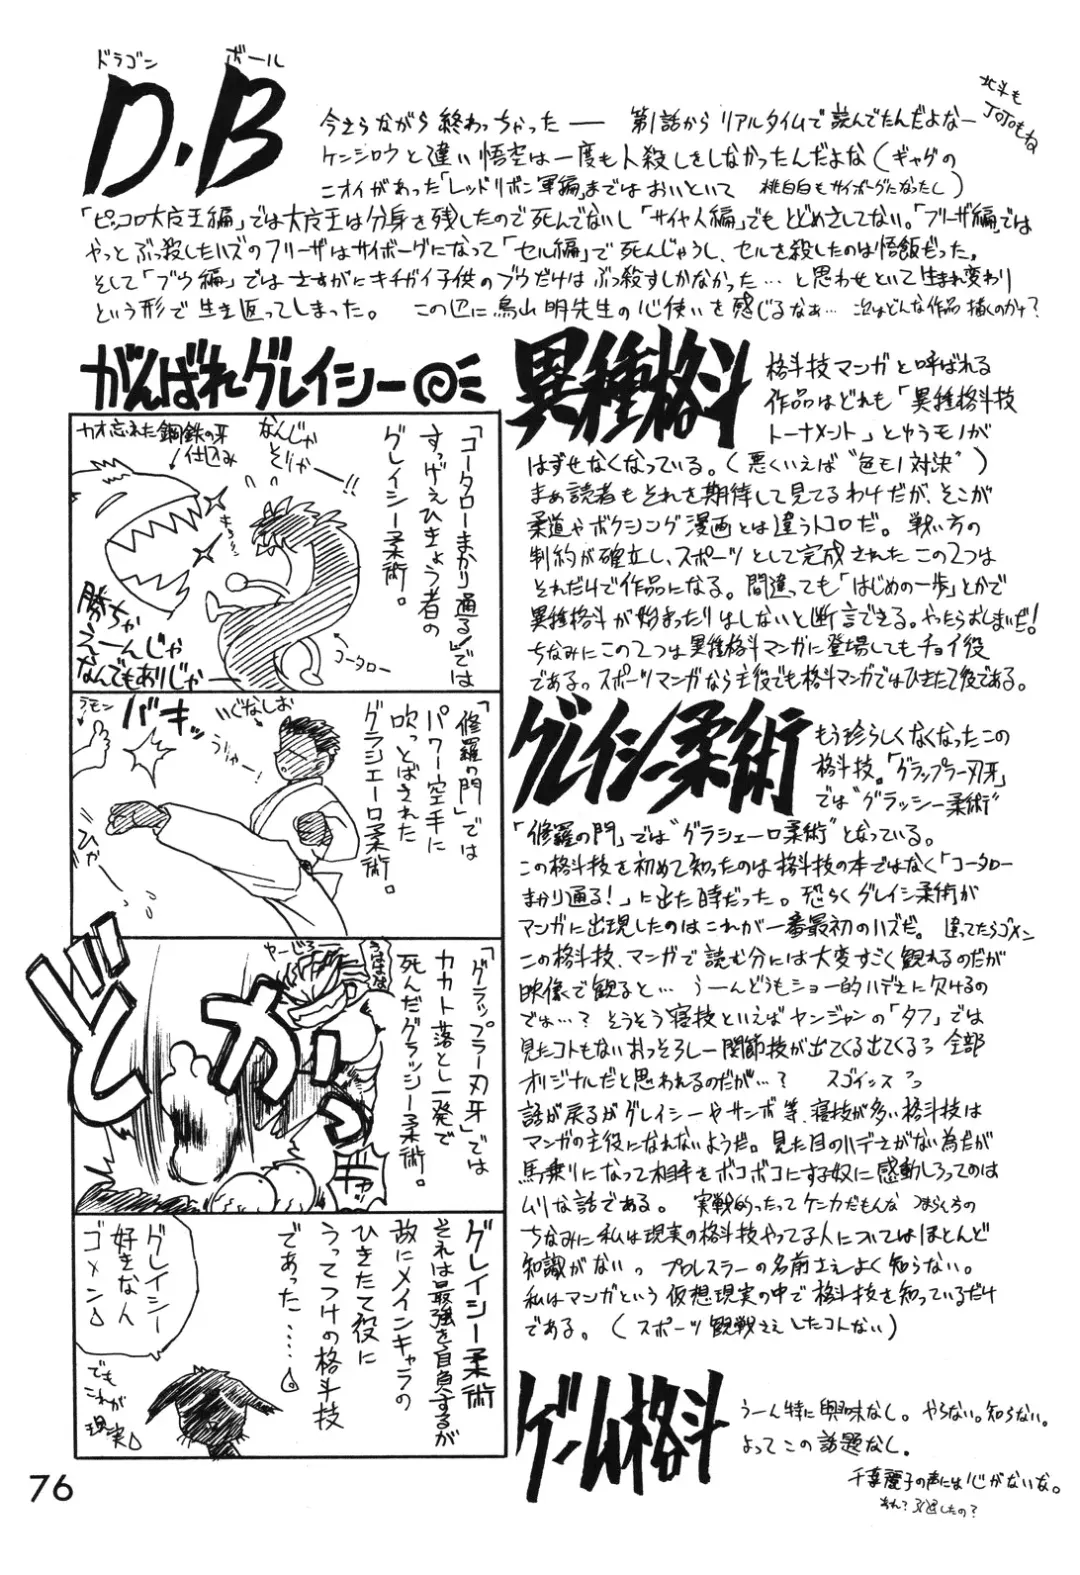 ドラゴン ボール
D.B
今さらながら終わっちゃった── 第1話からリアルタイムで読んでたんだよなー
北斗も
JOJOもね
ケンシロウと違い悟空は一度も人殺しをしなかったんだよな(ギャグの
ニオイがあった「レッドリボン軍編」まではおいといて 桃白白もサイボーグになったし)
「ピッコロ大魔王編」では大魔王は分身を残したので死んでないし「サイヤ人編」でもとどめさしてない。「フリーザ編」では
やっとぶっ殺したハズのフリーザはサイボーグになって「セル編」で死んじゃうし、セルを殺したのは悟飯だった。
そして「ブウ編」ではさすがにキチガイ子供のブウだけはぶっ殺すしかなかった…と思わせといて生まれ変わり
という形で生き返ってしまった。 この辺に鳥山明先生の心使いを感じるなぁ… 次はどんな作品描くのかナ?
がんばれグレイシー
「コータローまかり通る!」では
すっげえひきょう者の
グレイシー柔術。
なんじゃ
そりゃー!!
カオ忘れた
鋼鉄の牙
仕込み
コータロー
勝ちゃ
えーんじゃ
なんでもありじゃー
「修羅の門」では
パワー空手に
吹っとばされた
グラシエーロ柔術。
いぐなしお
うりゃー!
バキッ
ラモン
「グラップラー刃牙」では
カカト落とし一発で
死んだグラッシー柔術。
ドカッ
ギャッ
グレイシー柔術
それは最強を自負するが
故にメインキャラの
ひきたて役に
うってつけの格斗技
であった……。
グレイシー
好きなん
ゴメン
でも
これが
現実
異種格斗
格斗技マンガと呼ばれる
作品はどれも「異種格斗技
トーナメント」とゆうモノが
はずせなくなっている。(悪くいえば"色モノ対決")
まぁ読者もそれを期待して見てるわけだが、そこが
柔道やボクシング漫画とは違うトコロだ。 戦い方の
制約が確立し、スポーツとして完成されたこの2つは
それだけで作品になる。間違っても「はじめの一歩」とかで
異種格斗が始まったりはしないと断言できる。やったらおしまいだ!
ちなみにこの2つは異種格斗マンガに登場してもチョイ役
である。スポーツマンガなら主役でも格斗マンガではひきたて役である。
グレイシー柔術
もう珍らしくなくなったこの
格斗技。「グラップラー刃牙」
では"グラッシー柔術"
「修羅の門」では"グラシエーロ柔術"となっている。
この格斗技を初めて知ったのは格斗技の本ではなく「コータロー
まかり通る!」に出た時だった。恐らくグレイシー柔術が
マンガに出現したのはこれが一番最初のハズだ。 違ってたらゴメン
この格斗技、マンガで読む分には大変すごく観れるのだが
映像で観ると… うーんどうもショー的ハデさに欠けるの
では…? そうそう寝技といえばヤンジャンの「タフ」では
見たコトもないおっそろしー関節技が出てくる出てくるっ 全部
オリジナルだと思われるのだが…? スゴイッスっ
話が戻るがグレイシーやサンボ等、寝技が多い格斗技は
マンガの主役になれないようだ。見た目のハデさがない為だが
馬乗りになって相手をボコボコにする奴に感動しろってのは
ムリな話である。 実戦的ったってケンカだもんな つまらんもの
ちなみに私は現実の格斗技やってる人についてはほとんど
知識がない。 プロレスラーの名前さえよく知らない。
私はマンガという仮想現実の中で格斗技を知っているだけ
である。(スポーツ観戦さえしたコトない)
ゲーム格斗
うーん特に興味なし。やらない。知らない。
よってこの話題なし。
千葉麗子の声には心がないな。
あれ?引退したの?
76